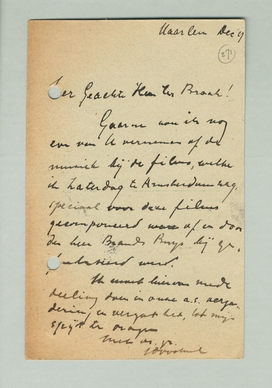 Haarlem Dec
Zeer Geachte Heer ter Braak!
Gaarne zou ik nog
even van U vernemen of de
muziek bij de films, welke
ik Zaterdag te Amsterdam zag,
speciaal voor deze films
gecomponeerd was of en door
den heer Brandts Buys bij
werd.
Ik moet hiervan mede
deeling doen in onze a.s. verga
dering en vergat het, tot mijn
spijt te vragen